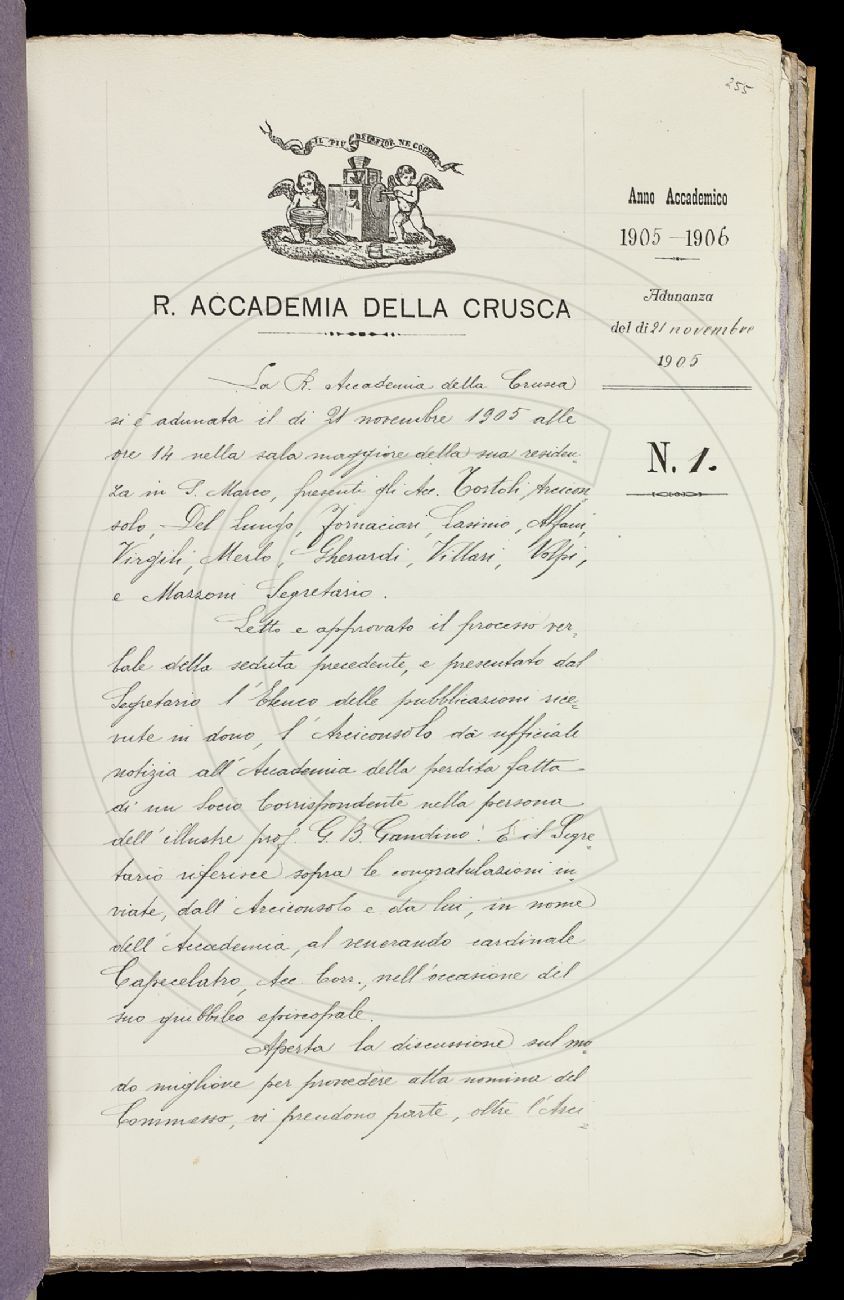 255
IL PIÙ BEL FIOR NE COGLIE
Anno Accademico
1905-1906
Adunanza
del dì 21 novembre
1905
N. 1.
R. ACCADEMIA DELLA CRUSCA
La R. Accademia della Crusca
si è adunata il di 21 novembre 1905 alle
ore 14 nella sala maggiore della sua residen-
za in S. Marco, presenti gli Acc. Tortoli Arcicon-
solo, Del Lungo, Fornaciari, Lasinio, Alfani,
Virgili, Merlo, Gherardi, Villari, Volpi,
e Mazzoni Segretario.
Letto e approvato il processo ver-
bale della seduta precedente, e presentato dal
Segretario l'Elenco delle pubblicazioni rice-
vute in dono, l'Arciconsolo dà ufficiale
notizia all'Accademia della perdita fatta
di un Socio Corrispondente nella persona
dell'illustre prof. G. B. Gandino. E il Segre-
tario riferisce sopra le congratulazioni in-
viate, dall'Arciconsolo e da lui, in nome
dell'Accademia, al venerando cardinale
Capecelatro, Acc. Corr., nell'occasione del
suo giubbileo episcopale.
Aperta la discussione sul mo-
do migliore per provvedere alla nomina del
Commesso, vi prendono parte, oltre l'Arci-